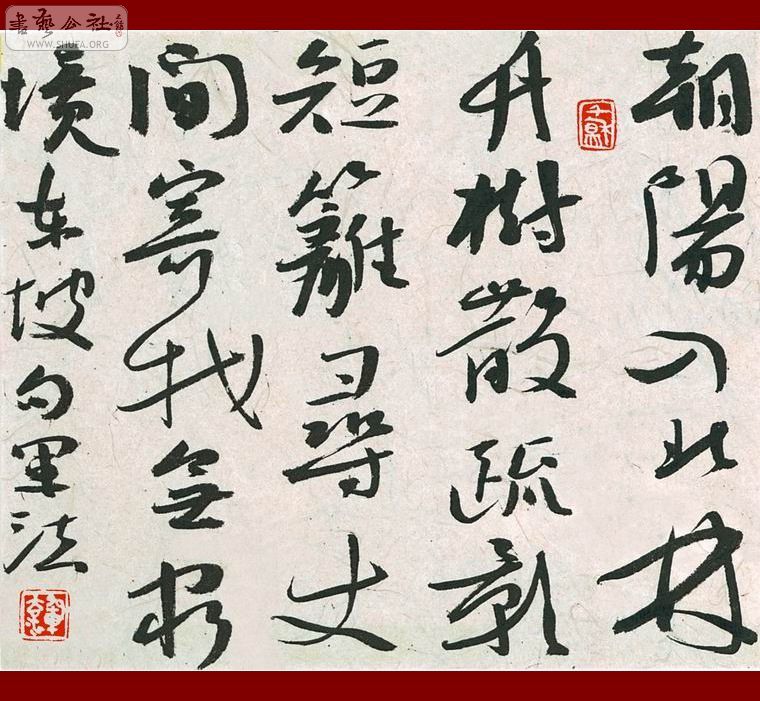 書藝公社
WWW.SHUFA.ORG
朝陽入北林
竹樹散疏影
短籬尋丈
間寄我無窮
境東坡句軍法